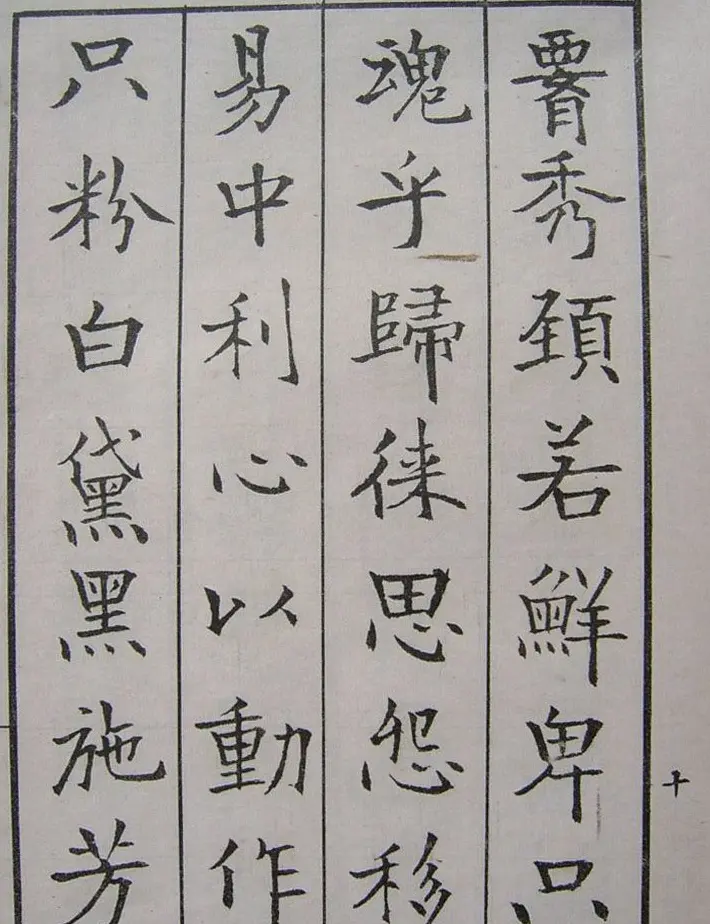 十
秀頸若鮮卑只
魂乎歸徠思怨移
易中利心以動作
只粉白黛黑施芳